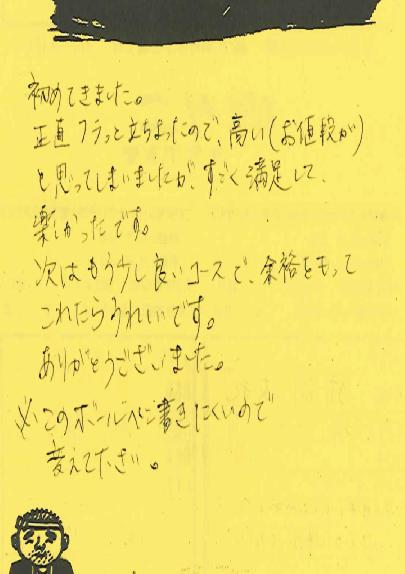 初めてきました。
正直フラっと立ちよったので、高い(お値段が)
と思ってしまいましたが、すごく満足して、
楽しかったです。
次はもう少し良いコースで、余裕をもって
これたらうれしいです。
ありがとうございました。
※このボールペン書きにくいので
変えて下さい。